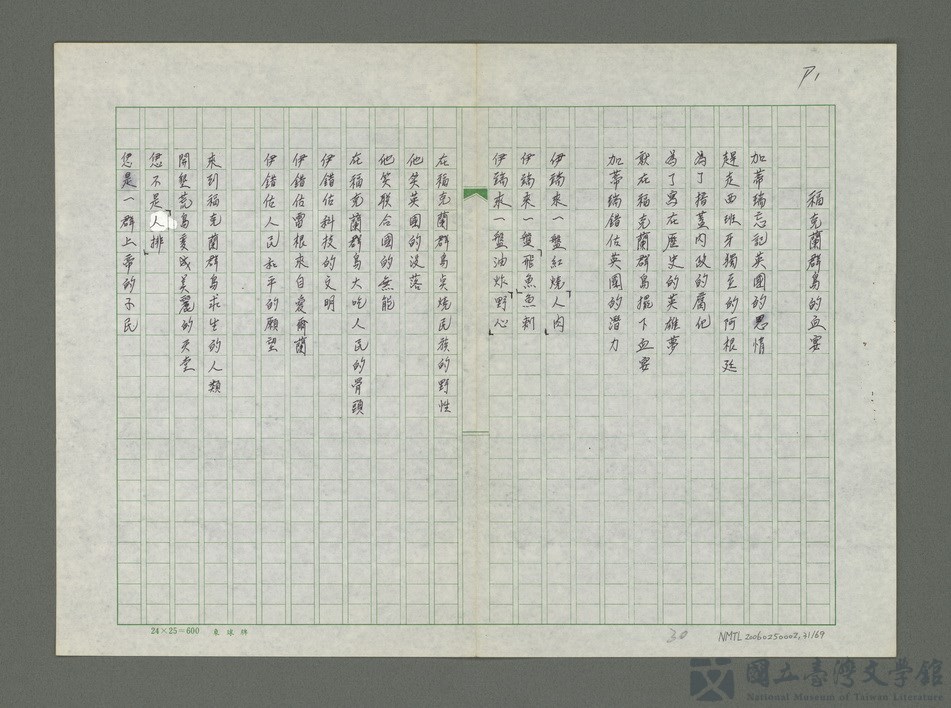 P1
福克蘭群島的血宴
加蒂瑞忘記英國的恩情
趕走西班牙獨立的阿根廷
為了搭蓋內政的腐化
為了寫在歷史的英雄夢
就在福克蘭群島擺下血宴
加蒂瑞錯估英國的潛力
伊端來一盤紅燒「人肉」
伊端來一盤飛魚「魚刺」
伊端來一盤油炸「野心」
在福克蘭群島点燒民族的野性
他笑英國的沒落
他笑聯合國的無能
在福克蘭群島大吃人民的骨頭
伊錯估科技的文明
伊錯估雷根來自愛爾蘭
伊錯估人民和平的願望
來到福克蘭群島求生的人類
開墾荒島變成美麗的天堂
您不是「人排」
您是一群上帝的子民
24×25=600
30
NMTL20060250002,31/69
國立臺灣文學館
National Museum of Taiwan Literature